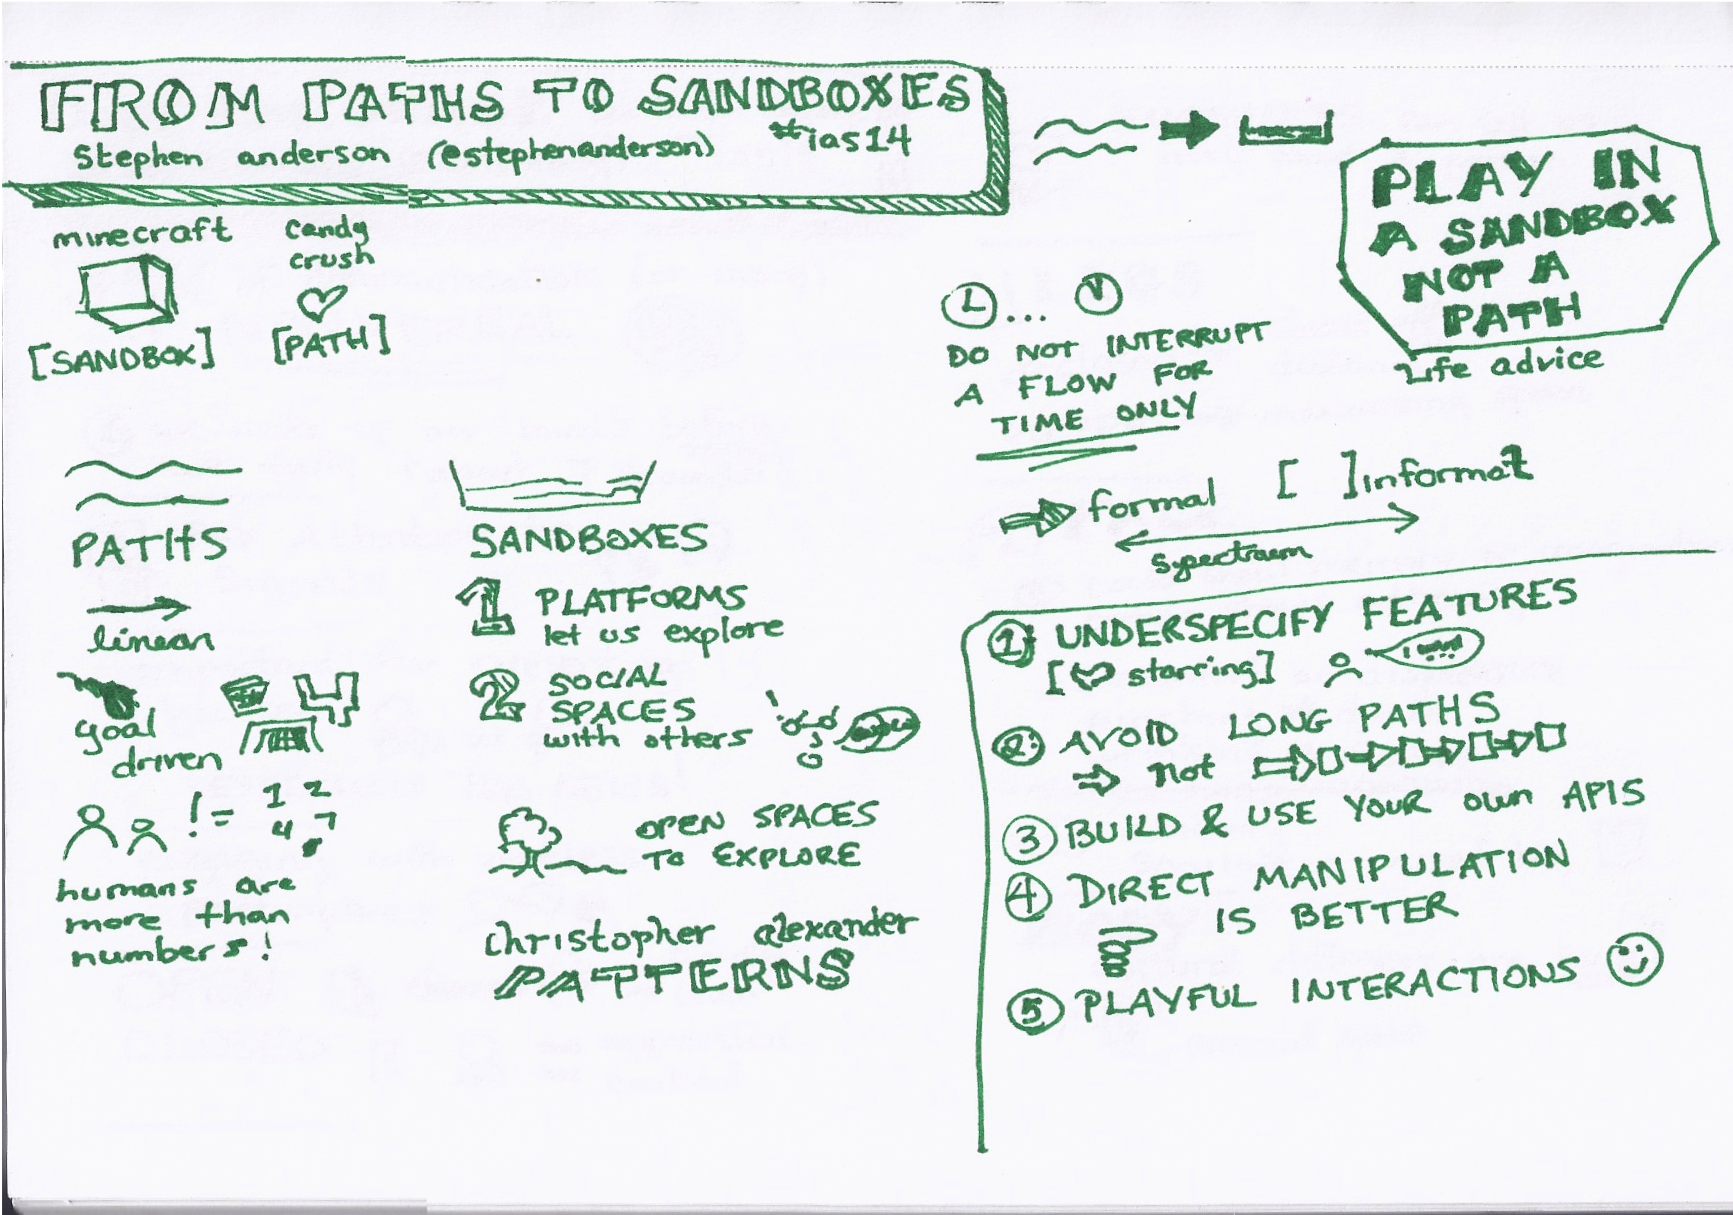 FROM PATHS TO SANDBOXES
Stephen anderson (@stephenanderson) #ias14
minecraft
[SANDBOX]
candy
crush
[PATH]
PATHS
linear
goal
driven
!= 1 2
4 7
humans are
more than
numbers!
SANDBOXES
1 PLATFORMS
let us explore
2 SOCIAL
SPACES
with others
!
OPEN SPACES
TO EXPLORE
christopher alexander
PATTERNS
PLAY IN
A SANDBOX
NOT A
PATH
Life advice
L... V
DO NOT INTERRUPT
A FLOW FOR
TIME ONLY
formal [ ] informal
spectrum
1 UNDERSPECIFY FEATURES
[ starring]
2. AVOID LONG PATHS
not
3 BUILD & USE YOUR own APIS
4 DIRECT MANIPULATION
IS BETTER
5 PLAYFUL INTERACTIONS